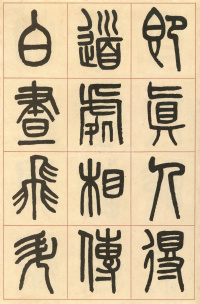 即真人得
道處相傳
白晝飛升